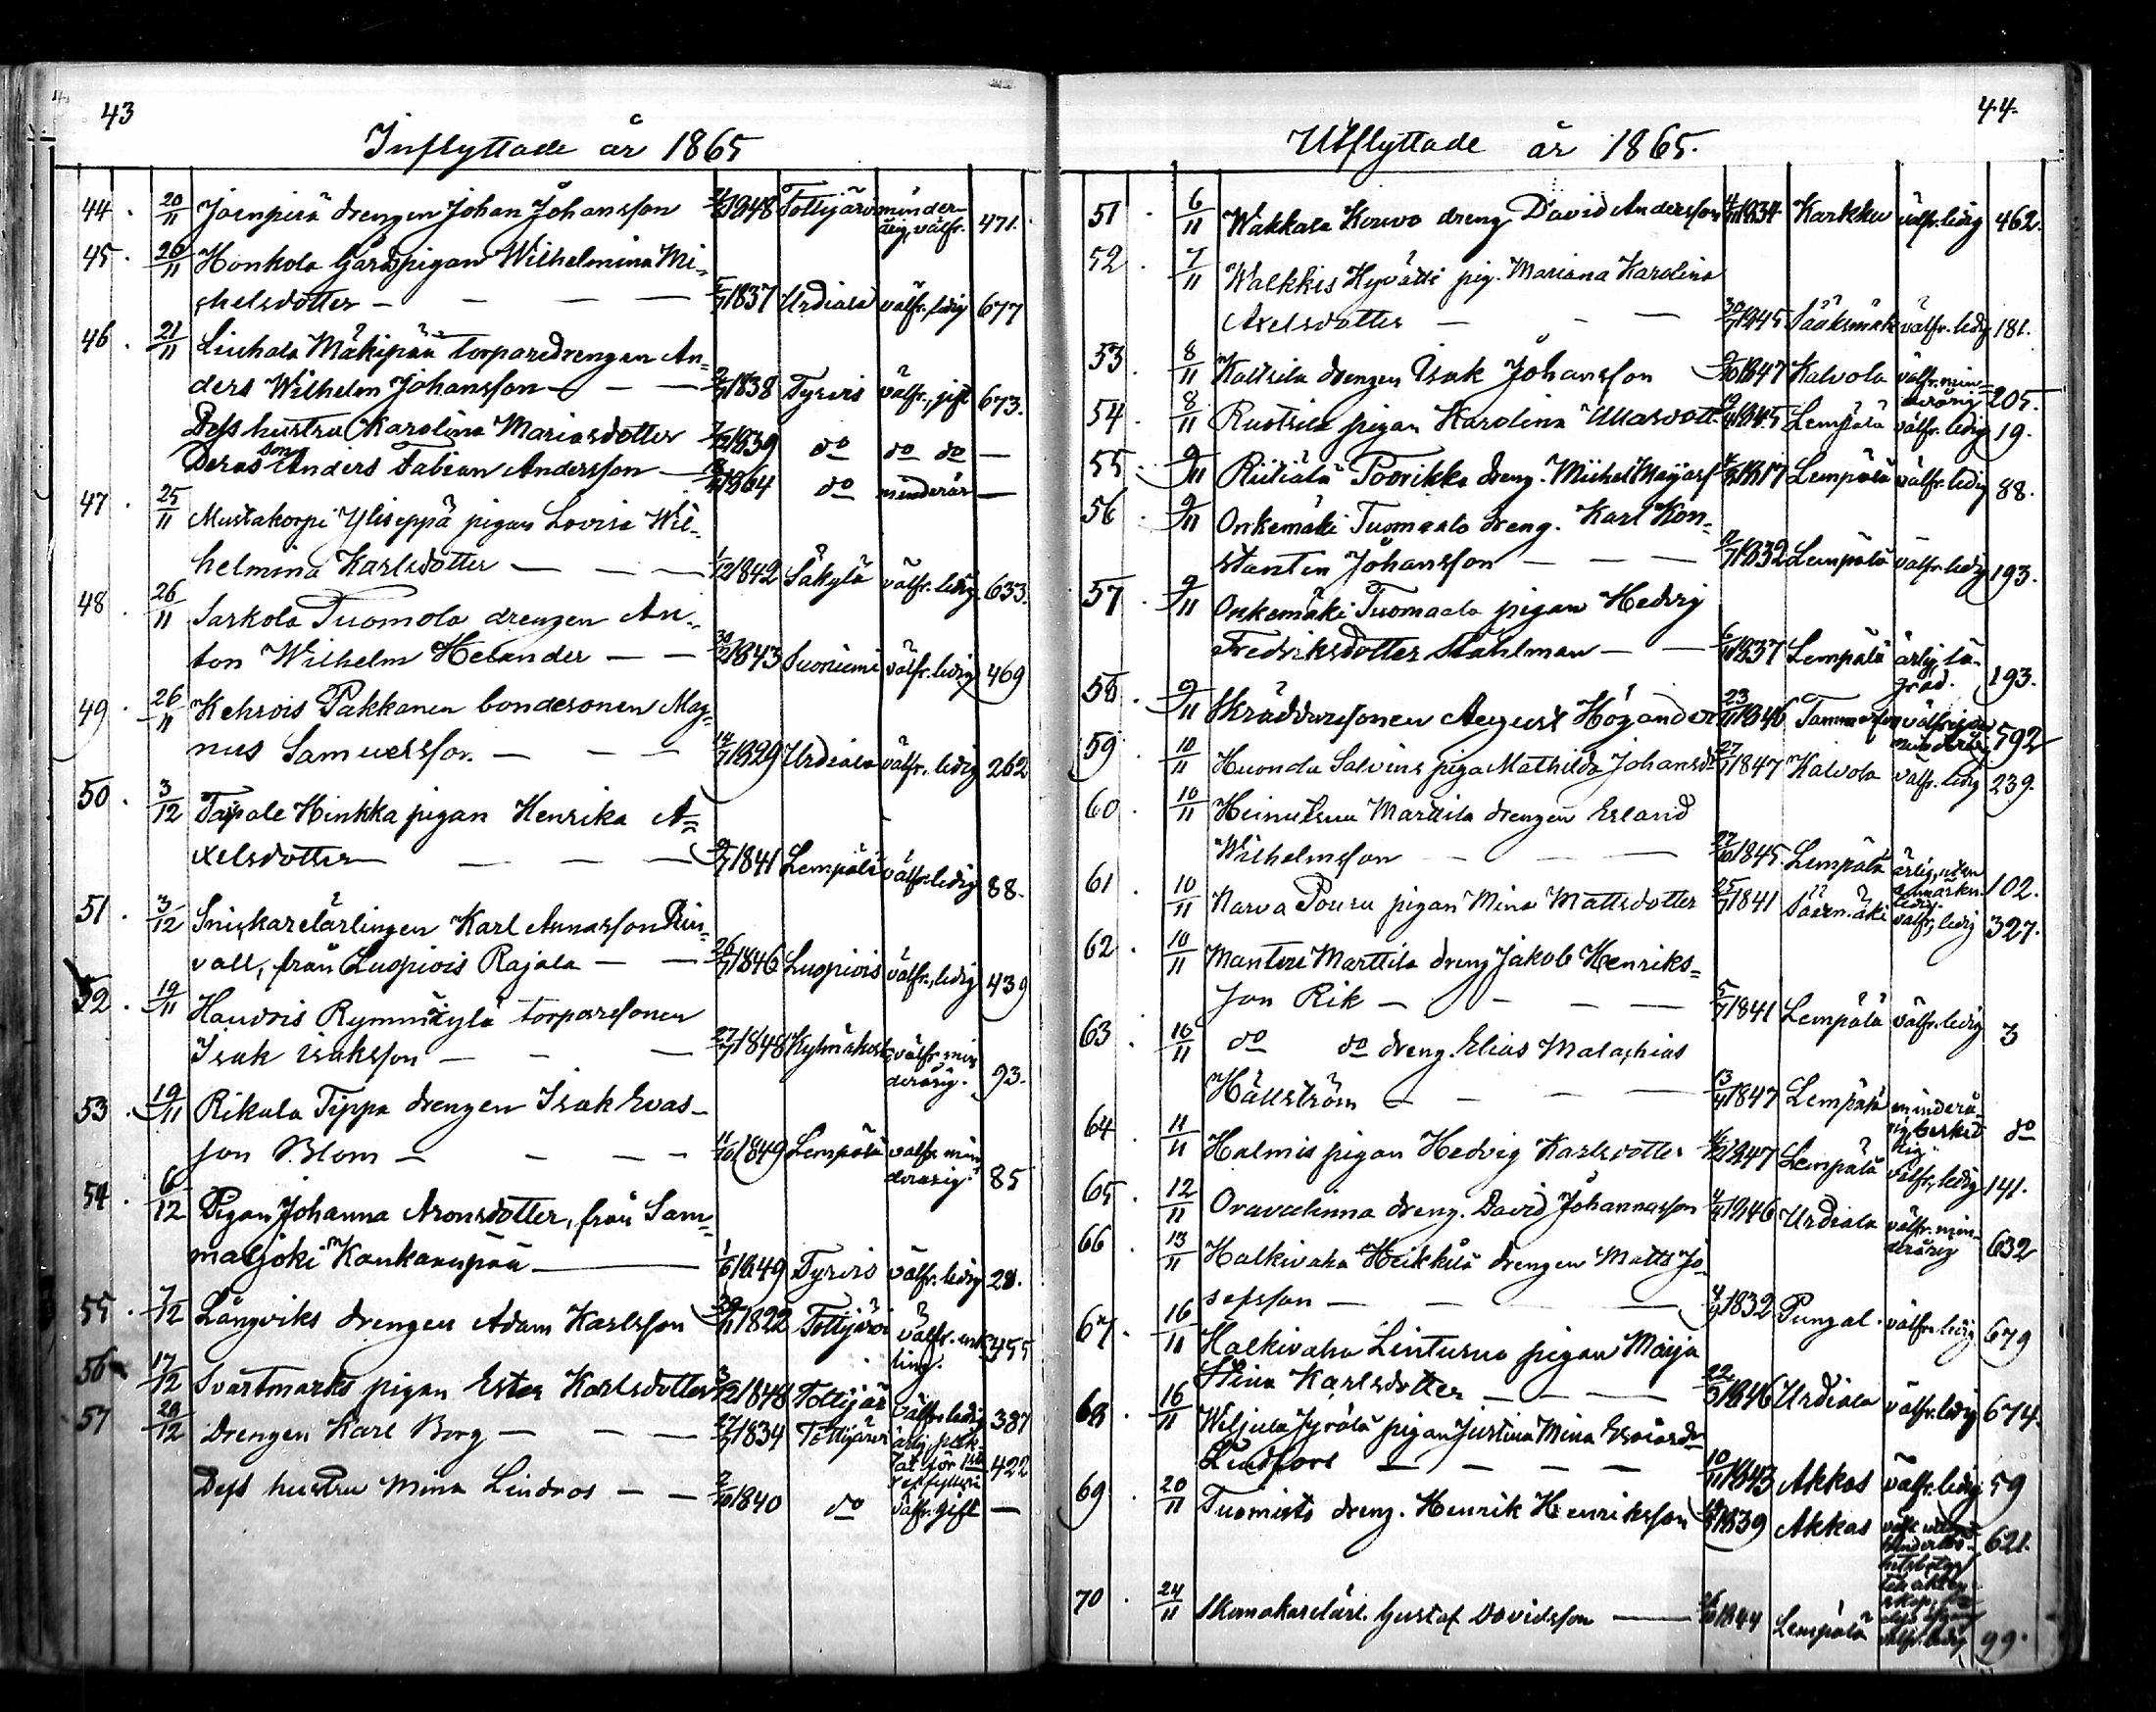 43
Inflyttade år 1865
44. 20/11 drengen Johan Johansson 1848 Tottijärvi minder-
årig, välfr. 471.
45. 20/11 Honkola Gårdspigan Wilhelmina Mi-
chelsdotter — — — 1837 Urdiala välfr. ledig 677
46. 21/11 Liuhala Mäkipää torparedrengen An-
ders Wilhelm Johansson — — 1838 Tyrvis välfr., gift 673.
Dess hustru Karolina Mariasdotter 1839 do do do —
Deras son Anders Fabian Andersson — 1864 do minderår —
47. 25/11 Mustakorpi Yliseppä pigan Lovisa Wil-
helmina Karlsdotter — — 1/12 1842 Säkylä välfr. ledig 633.
48. 26/11 Sarkola Tuomola drengen An-
ton Wilhelm Helander — — 1843 Suoniemi välfr. ledig 469
49. 26/11 Kehrois Pakkanen bondesonen Mag-
nus Samuelsson — — — 1829 Urdiala välfr. ledig 262
50. 3/12 Taipale Hinkka pigan Henrika A-
xelsdotter — — — 1841 Lempälä välfr. ledig 88.
51. 3/12 Snickarelärlingen Karl Annasson
vall, från Luopiois Rajala — — 1846 Luopiois välfr., ledig 439
52. 19/11 Rymmälylä torparesonen
Isak Isaksson — — — 27/7 1848 välfr. min
derårig. 93.
53. 19/11 Rikala Tippa drengen Isak Evas-
son Blom — — — 11/10 1849 Lempälä välfr. min
derårig 85
54. 6/12 Pigan Johanna Aronsdotter, från Sam-
maljoki Kankaanpää — 1849 Tyrvis välfr. ledig 28.
55. 7/12 Långviks drengen Adam Karlsson 1822 Tottijärvi välfr. enk-
ling. 455
56. 17/12 Svartmarks pigan Ester Karlsdotter 1848 Tottijär välfr. ledig 387
57 29/12 Drengen Karl Borg — — — 27/7 1834 Tottijärvi ärlig,
för 422
Dess hustru Mina Lindros — — 2/10 1840 do välfr. gift —
44.
Utflyttade år 1865.
51. 6/11 Wakkala Kouvo dreng David Andersson 1834 Karkku välfr. ledig 462.
52. 7/11 Walkkis Hyvätti pig. Mariana Karolina
Axelsdotter — — — 1845 Sääksmäki välfr. ledig 181.
53. 8/11 Kaitsila drengen Isak Johansson 1847 Kalvola välfr. min-
derårig 205.
54. 8/11 pigan Karolina Ullasdott. 1845 Lempälä välfr. ledig 19.
55. 9/11 Riitiälä Poorikka dreng. Michel 1817 Lempälä välfr. ledig 88.
56. 9/11 Onkemäki Tuomaala dreng. Karl Kon-
stantin Johansson — — 1832 Lempälä välfr. ledig 193.
57. 9/11 Onkemäki Tuomaala pigan Hedvig
Fredriksdotter Stahlman — — 1837 Lempälä ärlig, lä-
grad. 193.
58. 9/11 Skräddaresonen August Högander 1846 Tammerfors välfrejdad
minderår 592
59. 10/11 Huonda Salvius piga Mathilda Johansd. 1847 Kalvola välfr. ledig 239.
60. 10/11 Heinusuu Marttila drengen Erland
Wilhelmsson — — 1845 Lempälä ärlig, utan
anmärkn.
ledig. 102.
61. 10/11 Narva Pouru pigan Mina Mattsdotter 25/7 1841 välfr., ledig 327.
62. 10/11 Mantere Marttila dreng Jakob Henriks-
son Rik — — — 5/7 1841 Lempälä välfr. ledig 3
63. 10/11 do do dreng. Elias Malachias
Hällström — — — 1847 Lempälä minderå-
rig beskedlig do
64. 11/11 Halmis pigan Hedvig Karlsdotter 1847 Lempälä välfr., ledig 141.
65. 12/11 Oravalinna dreng. David Johannasson 1846 Urdiala välfr. min-
derårig 632
66. 13/11 Halkivaha Heikkilä drengen Matts Jo-
sefsson — — — 1832 Pungal. välfr. ledig 679
67. 16/11 Halkivaha Linturna pigan Maija
Stina Karlsdotter — — — 1846 Urdiala välfr. ledig 674.
68. 16/11 Wiljula Jyrälä pigan Justina Mina
Lindfors — — — — 10/11 1843 Akkas välfr. ledig 59
69. 20/11 Tuomisto dreng. Henrik Henriksson 1839 Akkas 621.
70. 24/11 Skomakarelärl. Gustaf Davidsson — 1844 Lempälä välfr. ledig 99.